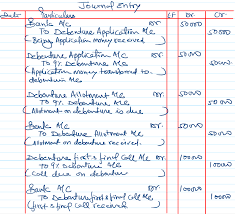 Journal Entry
Date Particulars LF Dr Cr
Bank A/c Dr 50000
To Debenture Application A/c 50000
(Being Application money received)
Debenture Application A/c Dr 50000
To 9% Debenture A/c 50000
(Application money transferred to debenture A/c
Debenture Allotment A/c Dr 50000
To 9% Debenture A/c 50000
(Allotment on debenture is due)
Bank A/c Dr 50000
To Debenture Allotment A/c 50000
(Allotment on debenture received)
Debenture first & final Call A/c Dr 100000
To 9% Debenture A/c 100000
(Call due on debenture
Bank A/c Dr 100000
To Debenture first & final Call A/c 100000
(first & final Call received)